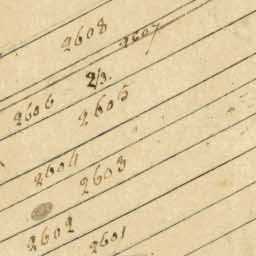 2608
2607
2/3.
2606
2605
2604
2603
2602
2601